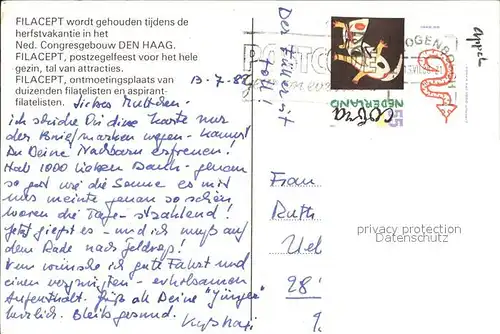 FILACEPT wordt gehouden tijdens de
herfstvakantie in het
Ned. Congresgebouw DEN HAAG.
FILACEPT, postzegelfeest voor het hele
gezin, tal van attracties.
FILACEPT, ontmoetingsplaats van
duizenden filatelisten en aspirant-
filatelisten.
13.-7-88
Der Füller ist
toll!
POSTCODE
OGENBOSCH
cobra
55
NEDERLAND
appel
ich schicke Dir diese Karte nur
der Briefmarken wegen - kannst
Du Deine Nachbarn erfreuen!
Hab 1000 lieben Dank - genau
so gut wie die Sonne es mit
uns meinte genau so schön
waren die Tage - strahlend!
Jetzt gießt es - und ich muß auf
dem Rade nach
wünsche ich gute Fahrt und
einen vergnügten - erholsamen
Aufenthalt. Grüß als Deine
herzlich. Bleib gesund.
Frau
Ruth
Uel
28
privacy protection
Datenschutz